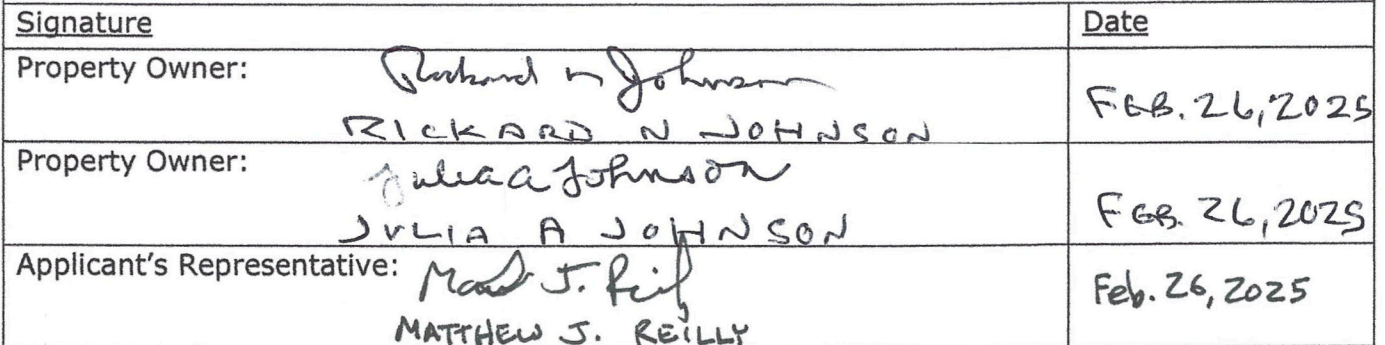 Signature Date
Property Owner: Rickard N Johnson
RICKARD N JOHNSON FEB. 26, 2025
Property Owner: Julia A Johnson
JULIA A JOHNSON FEB. 26, 2025
Applicant's Representative: Matt J. Reilly
MATTHEW J. REILLY Feb. 26, 2025